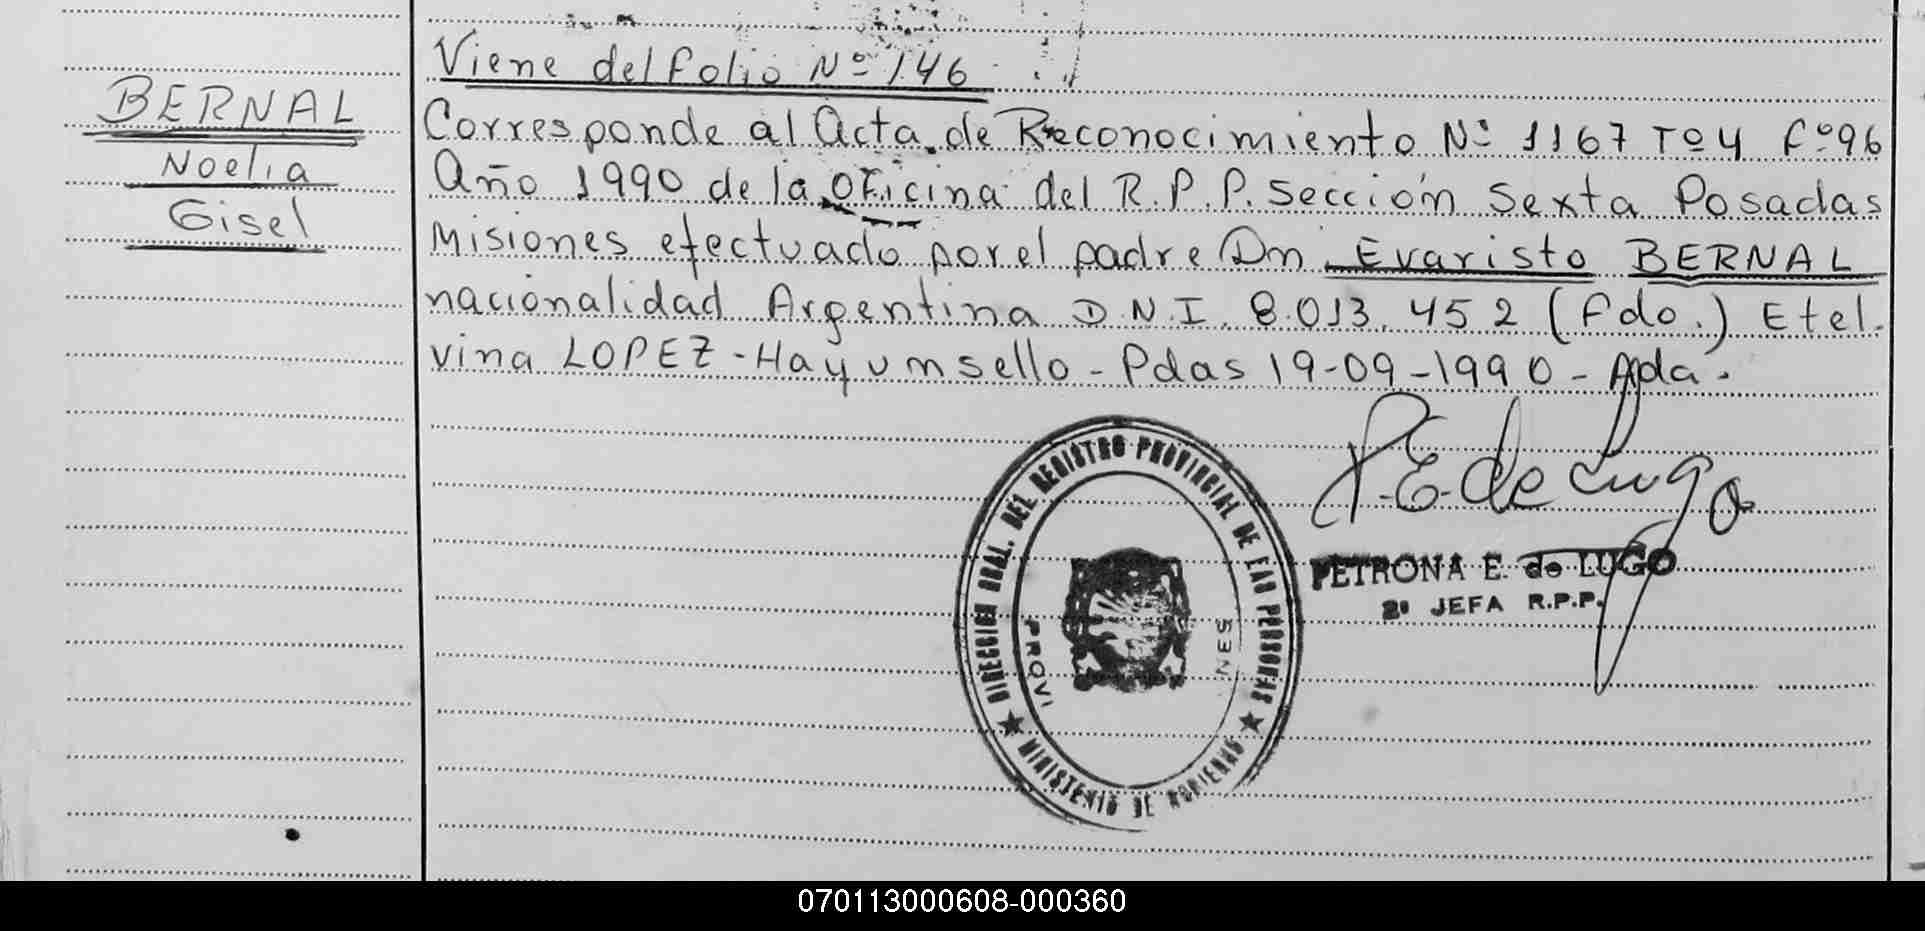 BERNAL
Noelia
Gisel
Viene del folio Nº 146
Corresponde al Acta de Reconocimiento Nº 1167 Tº 4 Fº 96
Año 1990 de la Oficina del R.P.P. Sección Sexta Posadas
Misiones efectuado por el padre Dn Evaristo BERNAL
nacionalidad Argentina D.N.I. 8.013.452 (Fdo.) Etel-
vina LOPEZ - Hay un sello - Pdas 19-09-1990 -
P.E. de Lugo
PETRONA E. de LUGO
2º JEFA R.P.P.
DIRECCION GRAL. DEL REGISTRO PROVINCIAL DE LAS PERSONAS
MINISTERIO DE GOBIERNO
PROVI NES
070113000608-000360